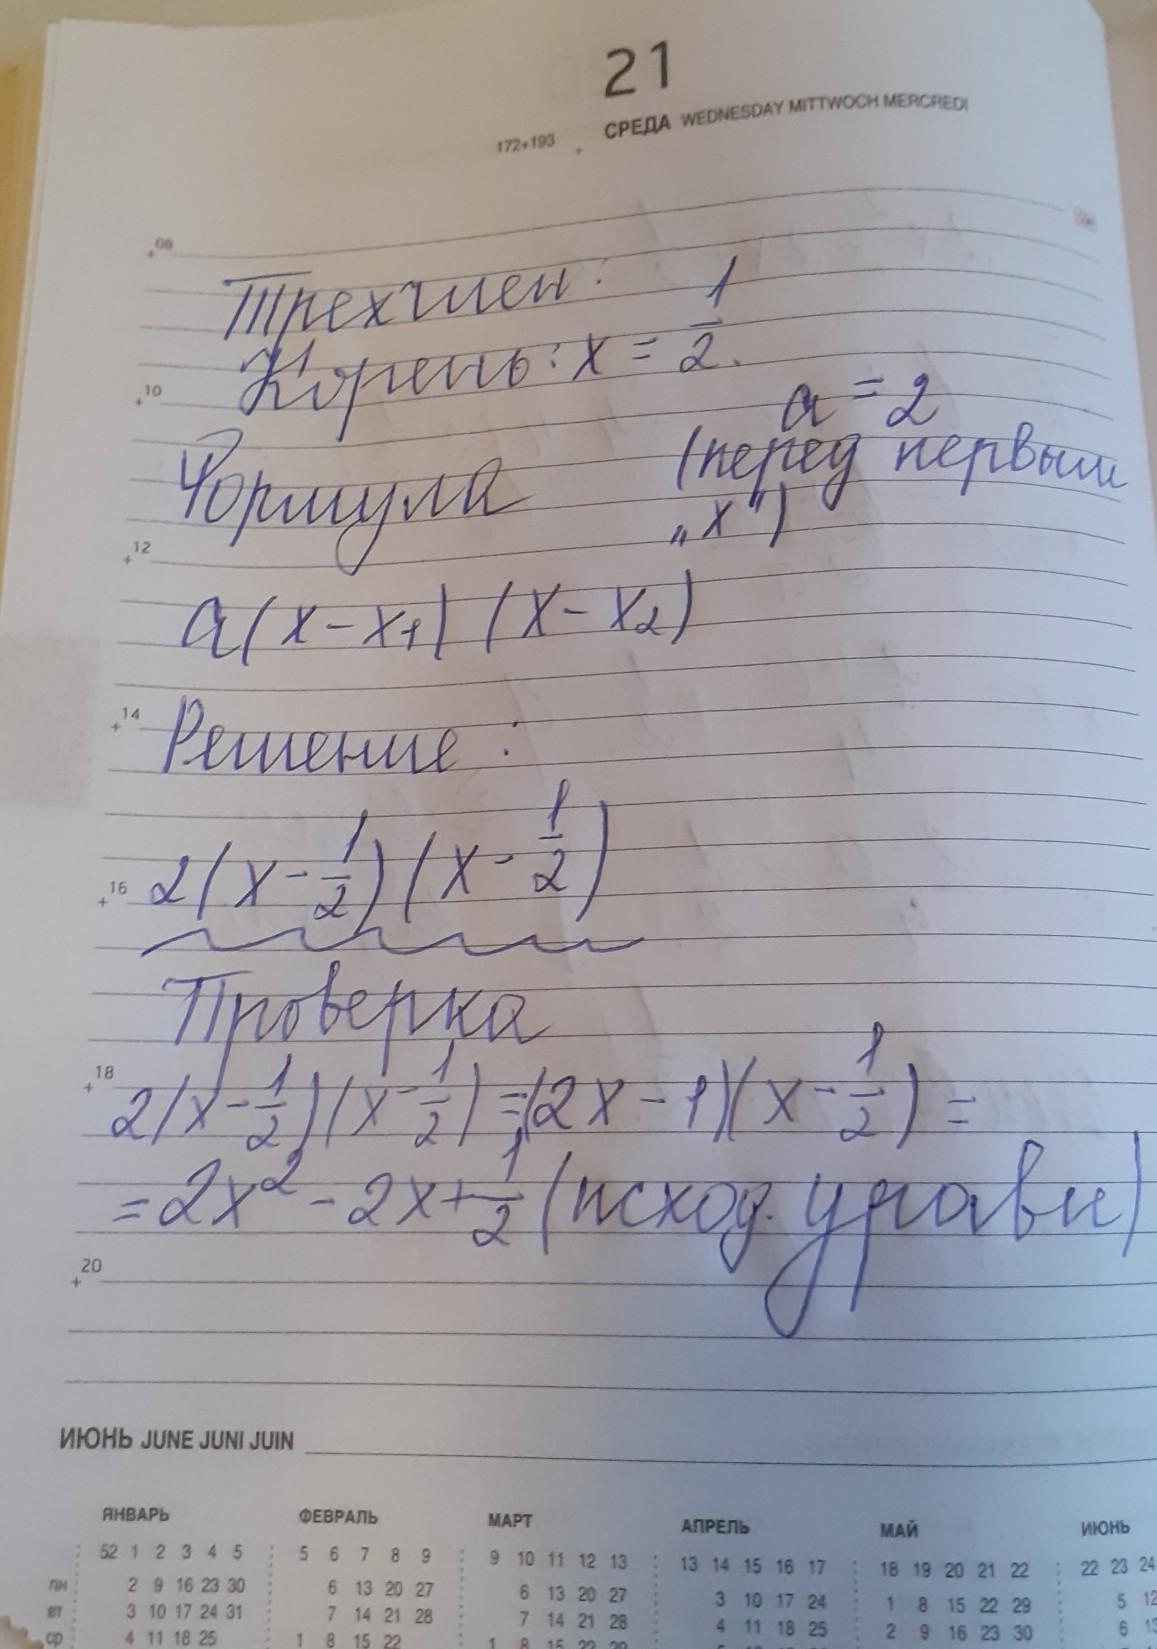 21
172+193 СРЕДА WEDNESDAY MITTWOCH MERCREDI
08
Трехчлен:
Корень: x = 1/2.
10
a = 2
Формула (перед первым
„x")
12
a(x-x₁)(x-x₂)
14
Решение:
2(x-1/2)(x-1/2)
16
Проверка
18
2(x-1/2)(x-1/2)=(2x-1)(x-1/2)=
=2x²-2x+1/2 (исход. уравн)
20
ИЮНЬ JUNE JUNI JUIN
ЯНВАРЬ ФЕВРАЛЬ МАРТ АПРЕЛЬ МАЙ ИЮНЬ
52 1 2 3 4 5 5 6 7 8 9 9 10 11 12 13 13 14 15 16 17 18 19 20 21 22 22 23 24
пн 2 9 16 23 30 6 13 20 27 6 13 20 27 3 10 17 24 1 8 15 22 29 5 12
вт 3 10 17 24 31 7 14 21 28 7 14 21 28 4 11 18 25 2 9 16 23 30 6 13
ср 4 11 18 25 1 8 15 22 1 8 15 22 29